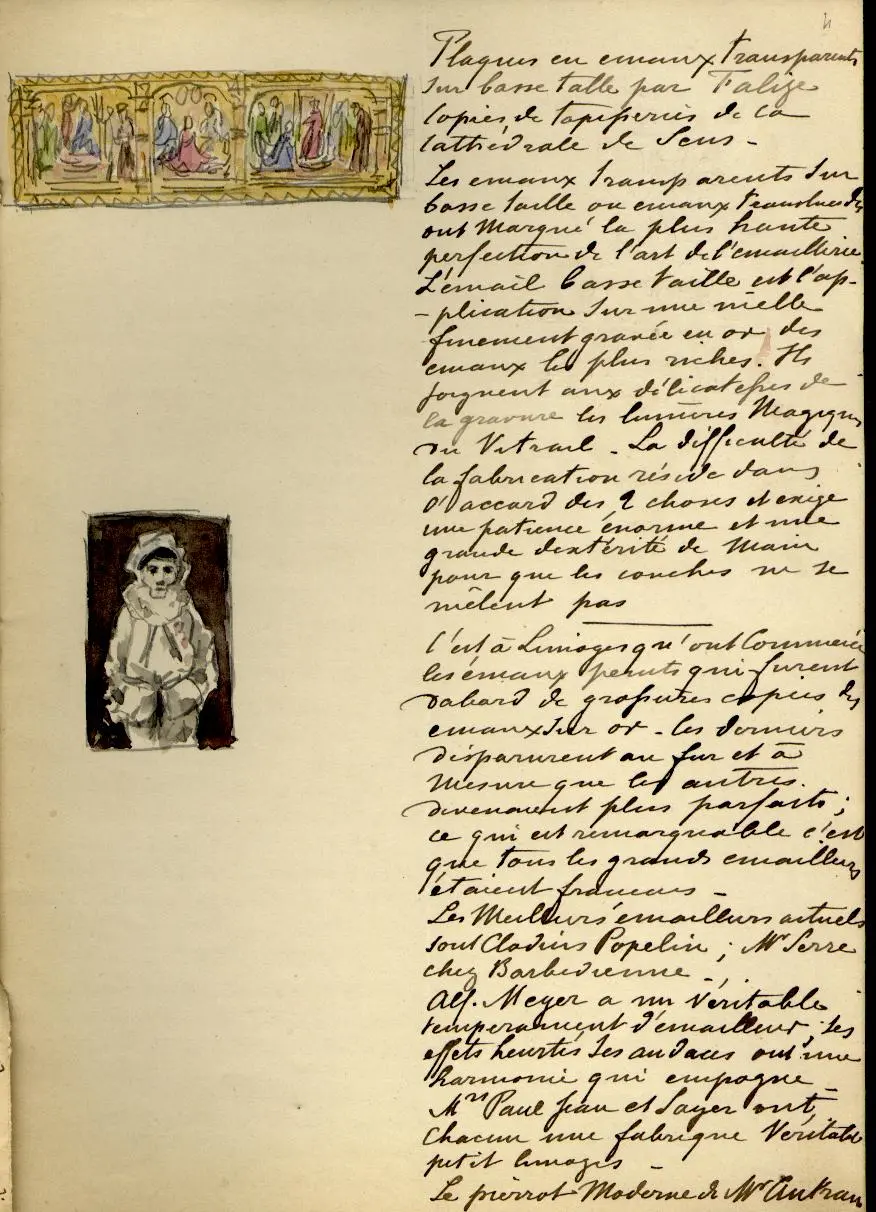 Plaques en emaux transparents
sur basse talle par Falize
copies de tapisseries de la
Cathédrale de Sens -
Les emaux transparents sur
basse taille ou emaux translucides
ont Marqué la plus haute
perfection de l'art de l'émaillerie
L'émail basse taille est l'ap-
-plication sur une nielle
finement gravée en or des
emaux les plus riches. Ils
joignent aux délicatesses de
la gravure les lumières Magiques
du Vitrail - La difficulté de
la fabrication réside dans
l'accord des 2 choses et exige
une patience énorme et une
grande dextérité de Main
pour que les couches ne se
mêlent pas
C'est à Limoges qu'ont Commencé
les émaux peints qui furent
d'abord de grossières copies des
emaux sur or - les derniers
disparurent au fur et à
Mesure que les autres
devenaient plus parfaits ;
ce qui est remarquable c'est
que tous les grands emailleurs
étaient francais -
Les Meilleurs émailleurs actuels
sont Cladius Popelin ; Mr Serre
chez Barbedienne -
Alf. Meyer a un Véritable
temperament d'émailleur ; ses
effets heurtés ses audaces ont une
harmonie qui empogne -
Mrs Paul Jean et Soyer ont
Chacun une fabrique Véritable
petit limoges -
Le pierrot Moderne de Mr